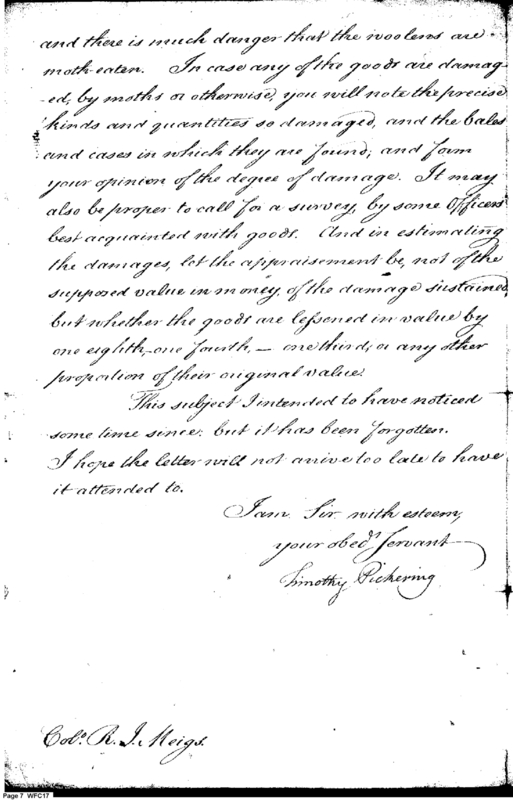 and there is much danger that the woolens are
moth-eaten. In case any of the goods are damag
-ed, by moths or otherwise, you will note the precise
kinds and quantities so damaged, and the bales
and cases in which they are found; and form
your opinion of the degree of damage. It may
also be proper to call for a survey, by some Officers
best acquainted with goods. And in estimating
the damages, let the appraisement be, not of the
supposed value in money, of the damage sustained,
but whether the goods are lessened in value by
one eighth, one fourth, — one third, or any other
proportion of their original value.
This subject I intended to have noticed
some time since: but it has been forgotten.
I hope the letter will not arrive too late to have
it attended to.
I am Sir with esteem,
your obedt. servant
Timothy Pickering
Colo. R. J. Meigs.
Page 7 WFC17